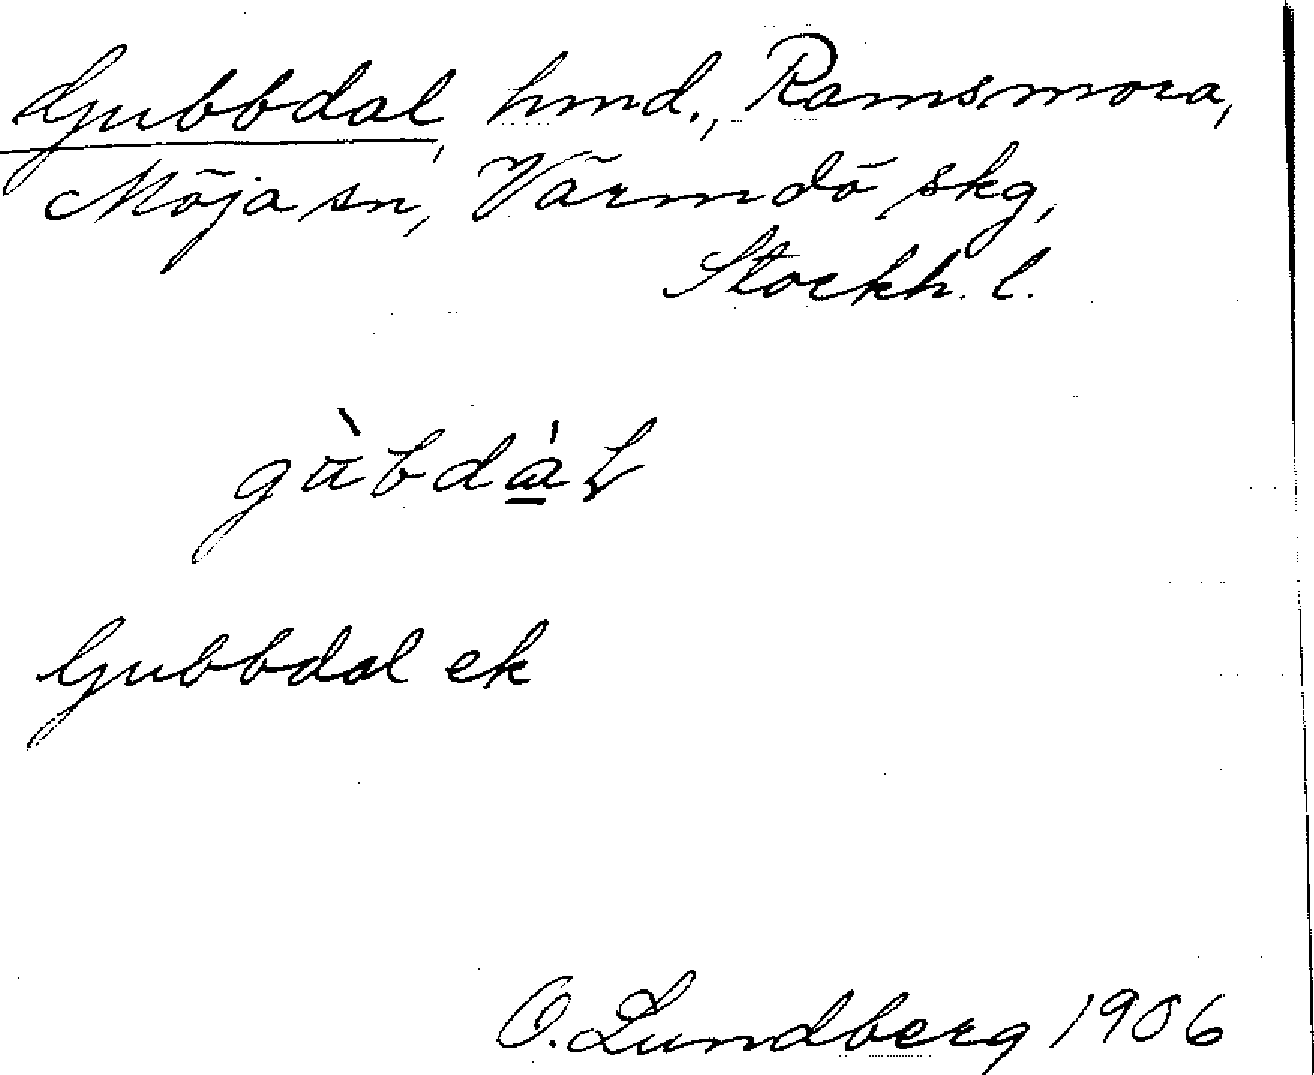 Gubbdal, hmd., Ramsmora,
Möja sn, Värmdö skg,
Stockh. l.
gu̅̀bdὰ̲ɫ
Gubbdal ek
O. Lundberg 1906